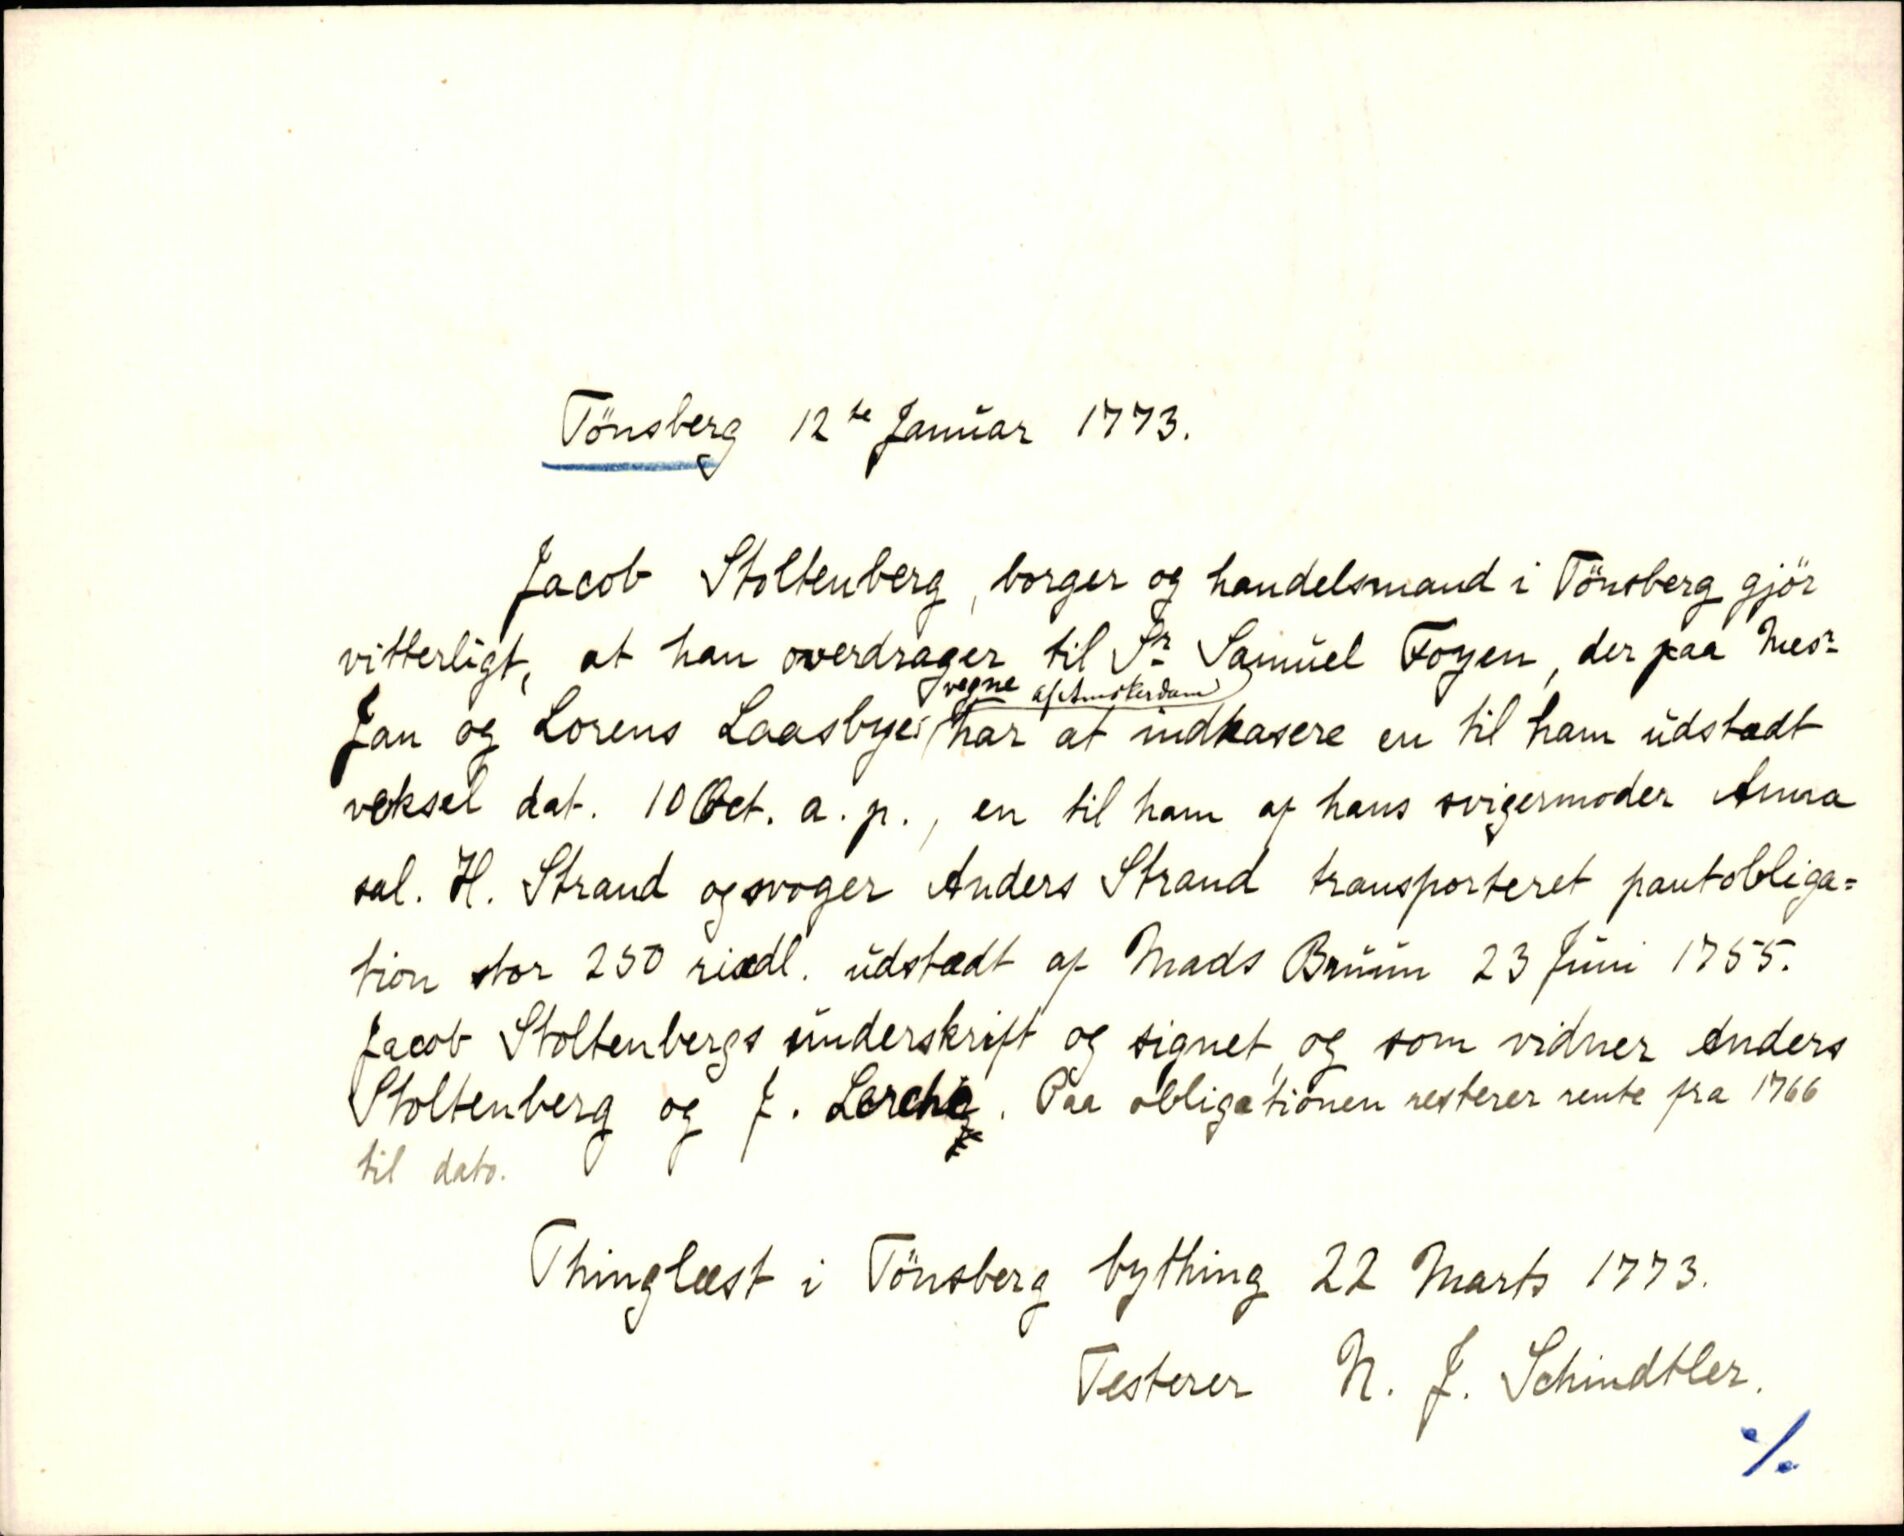 Tönsberg 12te Januar 1773.
Jacob Stoltenberg, borger og handelsmand i Tönsberg gjör
vitterligt, at han overdrager til Sr. Samuel Foyen, der paa Mesr.
vegne af Amsterdam
Jan og Lorens Laasbyes har at indkasere en til ham udstædt
veksel dat. 10 Oct. a. p., en til ham af hans svigermoder Anna
sal. H. Strand og svoger Anders Strand transporteret pantobliga=
tion stor 250 rixdl. udstædt af Mads Bruun 23 Juni 1755.
Jacob Stoltenbergs underskrift og signet, og som vidner Anders
Stoltenberg og J. Lerche. Paa obligationen resterer rente fra 1766
til dato.
Thinglæst i Tönsberg bything 22 Marts 1773.
Testerer N. J. Schindtler.
./.